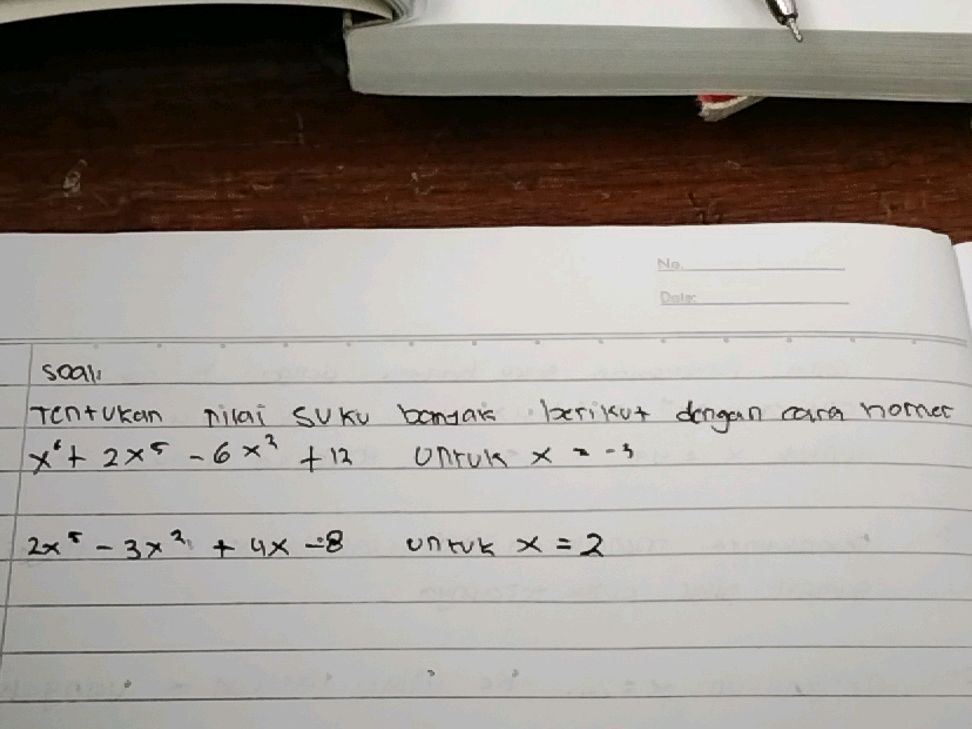 No.
Date:
Soal:
Tentukan nilai suku banyak berikut dengan cara horner
x⁶ + 2x⁵ - 6x³ + 12 untuk x = -3
2x⁵ - 3x² + 4x - 8 untuk x = 2